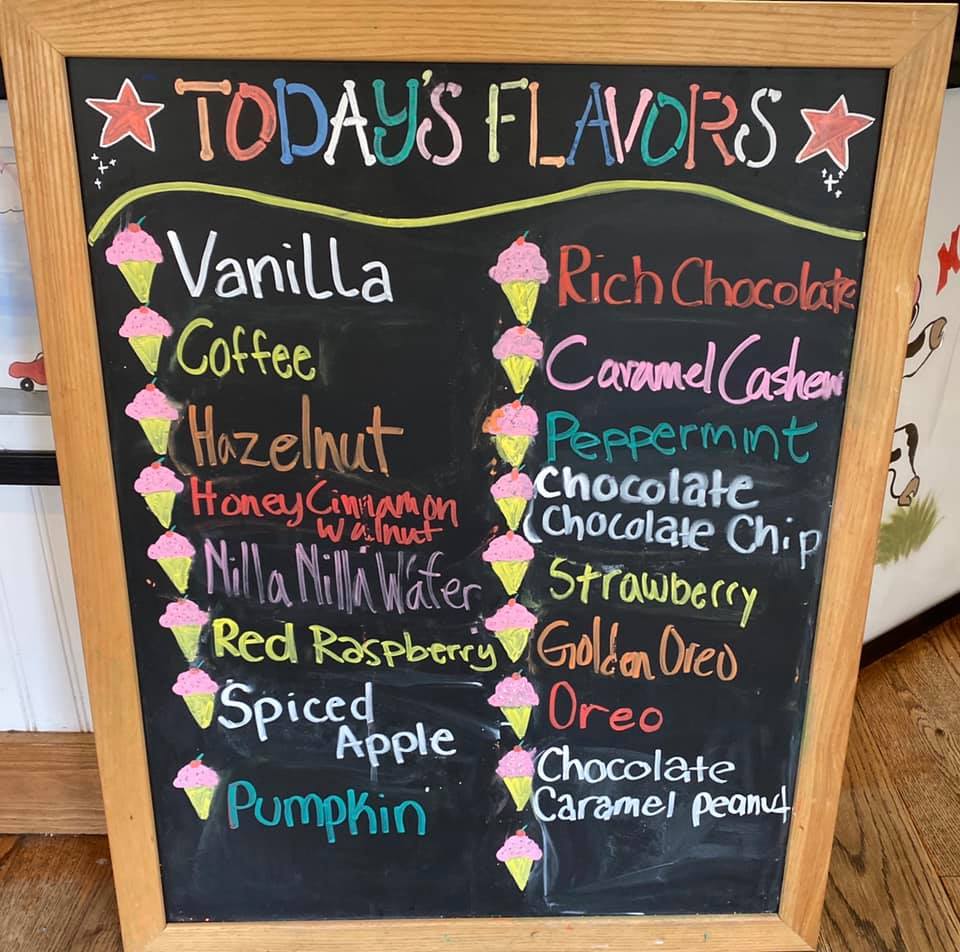 TODAY'S FLAVORS
Vanilla
Coffee
Hazelnut
Honey Cinnamon
Walnut
Nilla Nilla Wafer
Red Raspberry
Spiced
Apple
Pumpkin
Rich Chocolate
Caramel Cashew
Peppermint
Chocolate
Chocolate Chip
Strawberry
Golden Oreo
Oreo
Chocolate
Caramel peanut